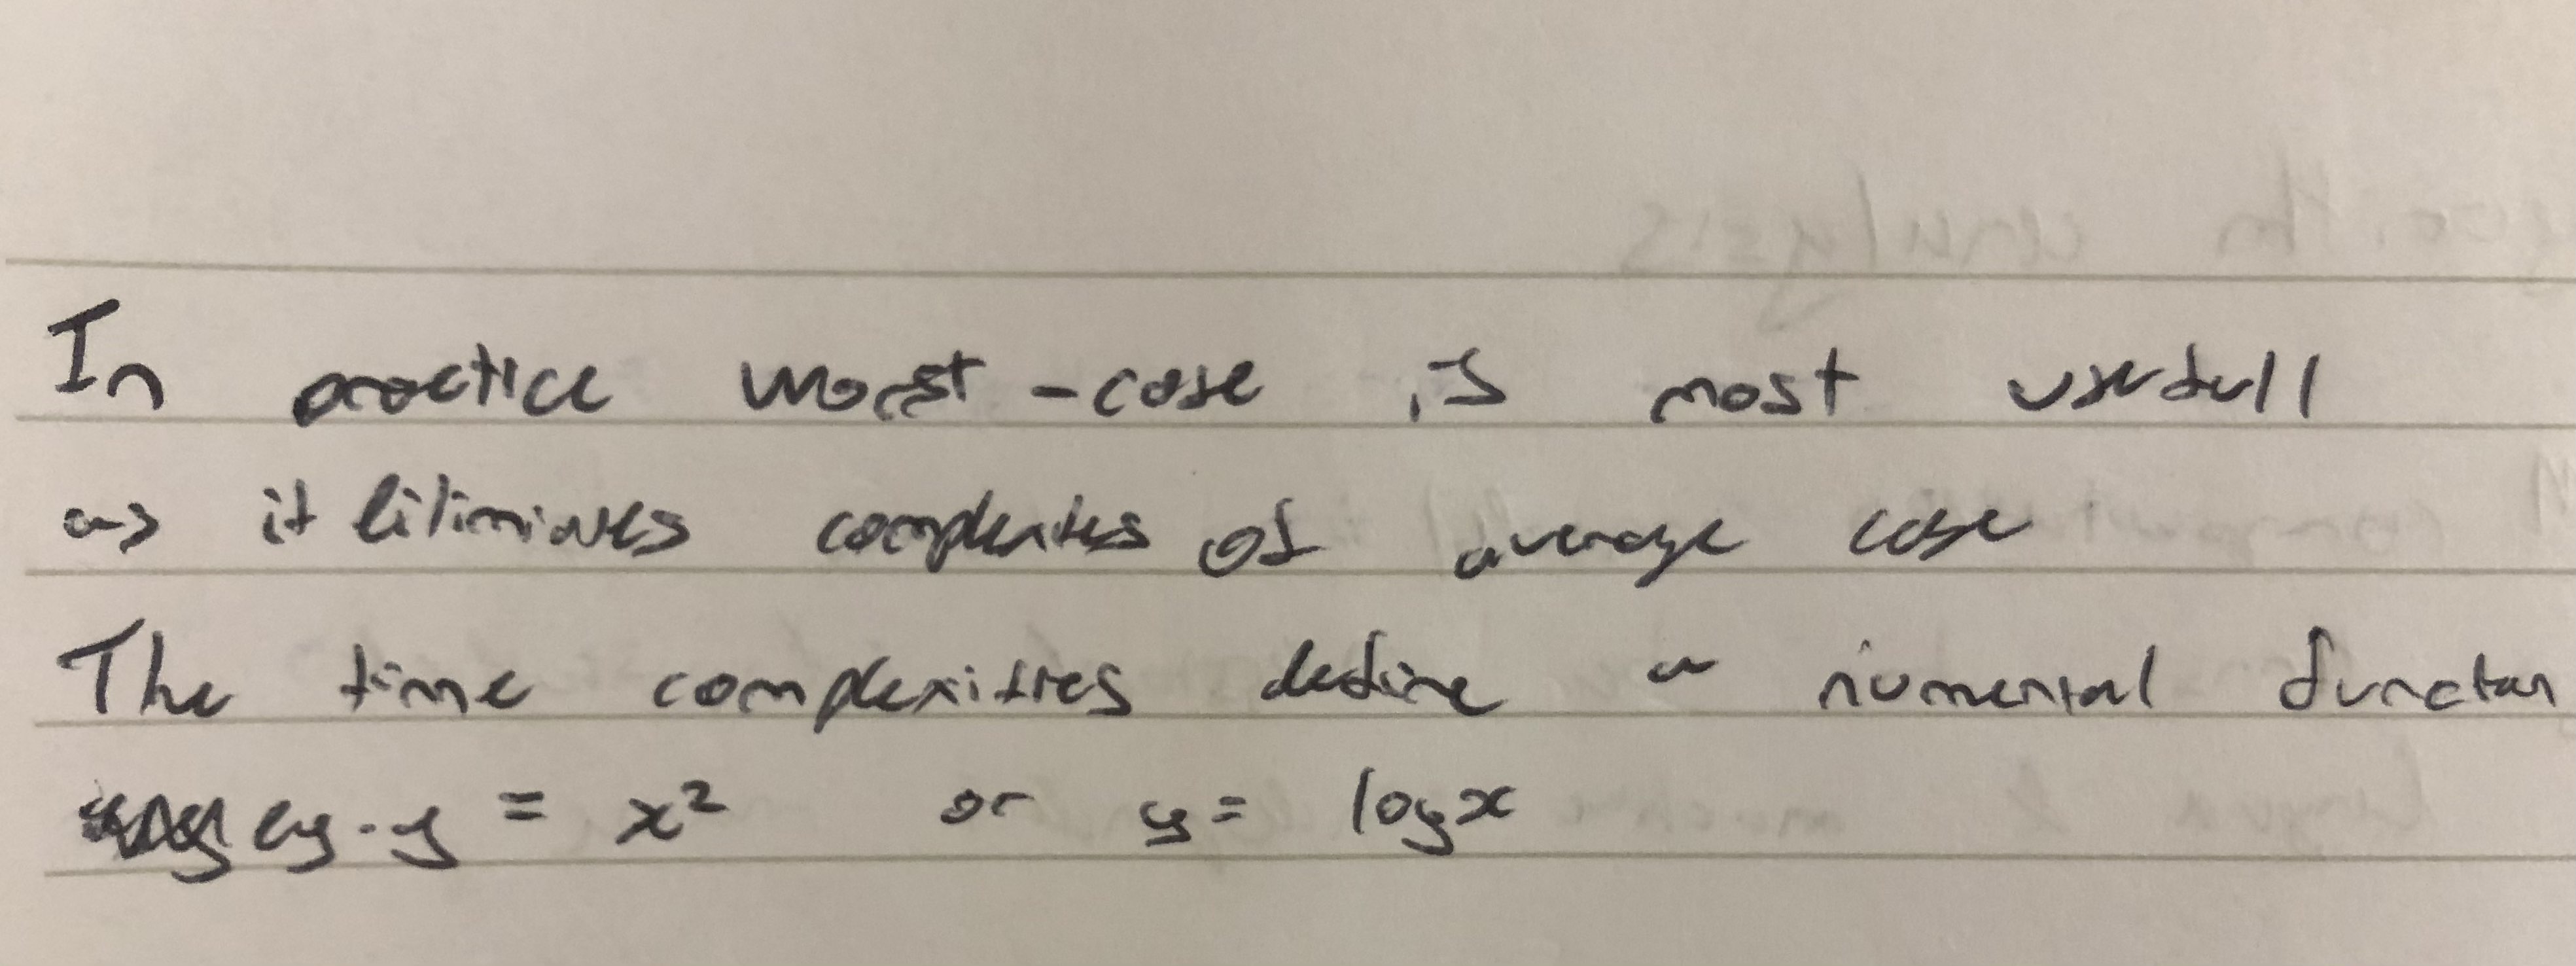 In practice worst-case is most usefull
as it eliminates complexities of average case
The time complexities define a numerical function
eg. y = x² or y = log x